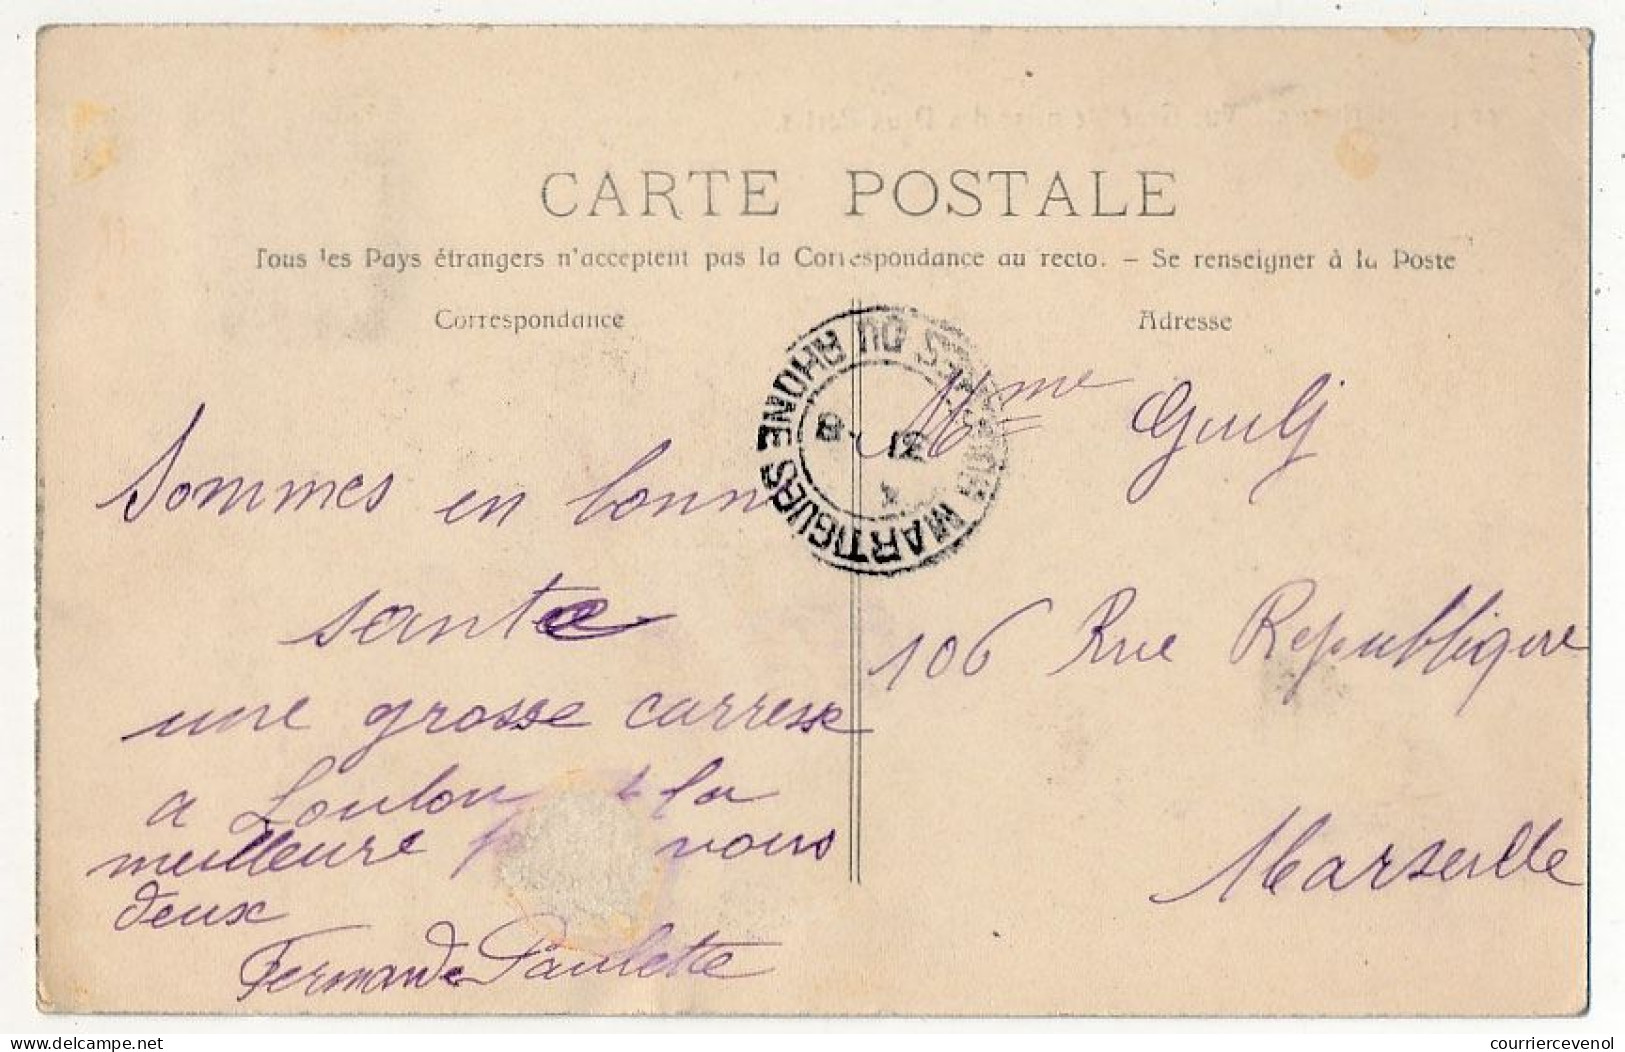 CARTE POSTALE
Tous les Pays étrangers n'acceptent pas la Correspondance au recto. – Se renseigner à la Poste
Correspondance
Adresse
MARTIGUES BCHES DU RHONE
Sommes en bonn
sante
une grosse carresse
a Loulou & la
meilleure vous
deux
Fernande Paulette
Mme
106 Rue Republique
Marseille
courriercevenol
delcampe.net